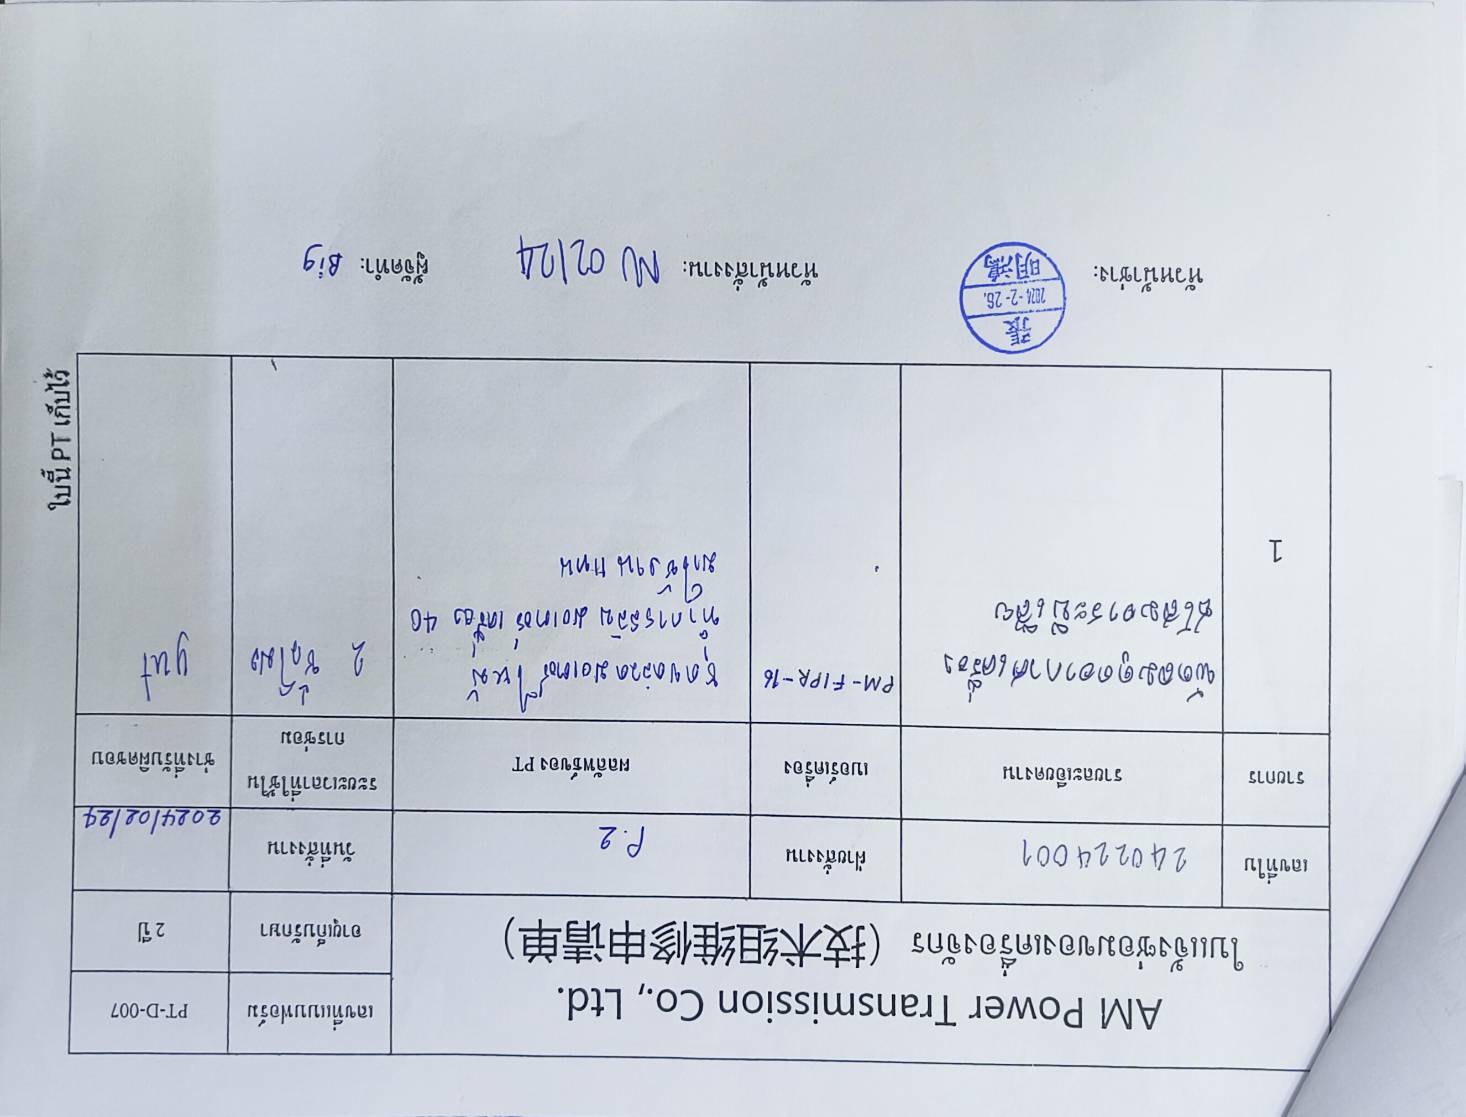 AM Power Transmission Co., Ltd.
ใบแจ้งซ่อมของเครื่องจักร (技术组维修申请单)
เลขที่แบบฟอร์ม PT-D-007
อายุเก็บรักษา 2 ปี
เลขที่ใบ 240224001 ฝ่ายสั่งงาน P.2 วันที่สั่งงาน 2024/02/24
รายการ รายละเอียดงาน เบอร์เครื่อง ผลลัพธ์ของ PT ระยะเวลาที่ใช้ใน ช่างที่รับผิดชอบ
การซ่อม
1
พัดลมดูดอากาศเครื่อง
อาระบีเสีย
PM-FIPR-16
ชุดขดลวดมอเตอร์ไหม้
ทำการสลับ มอเตอร์ เครื่อง 40
มาใช้งานแทน
2 ชั่วโมง
yut
ใบนี้ PT เก็บไว้
หัวหน้าช่าง: 張
2024-2-26.
明鴻
หัวหน้าสั่งงาน: NU 02/24
ผู้จัดทำ: Big